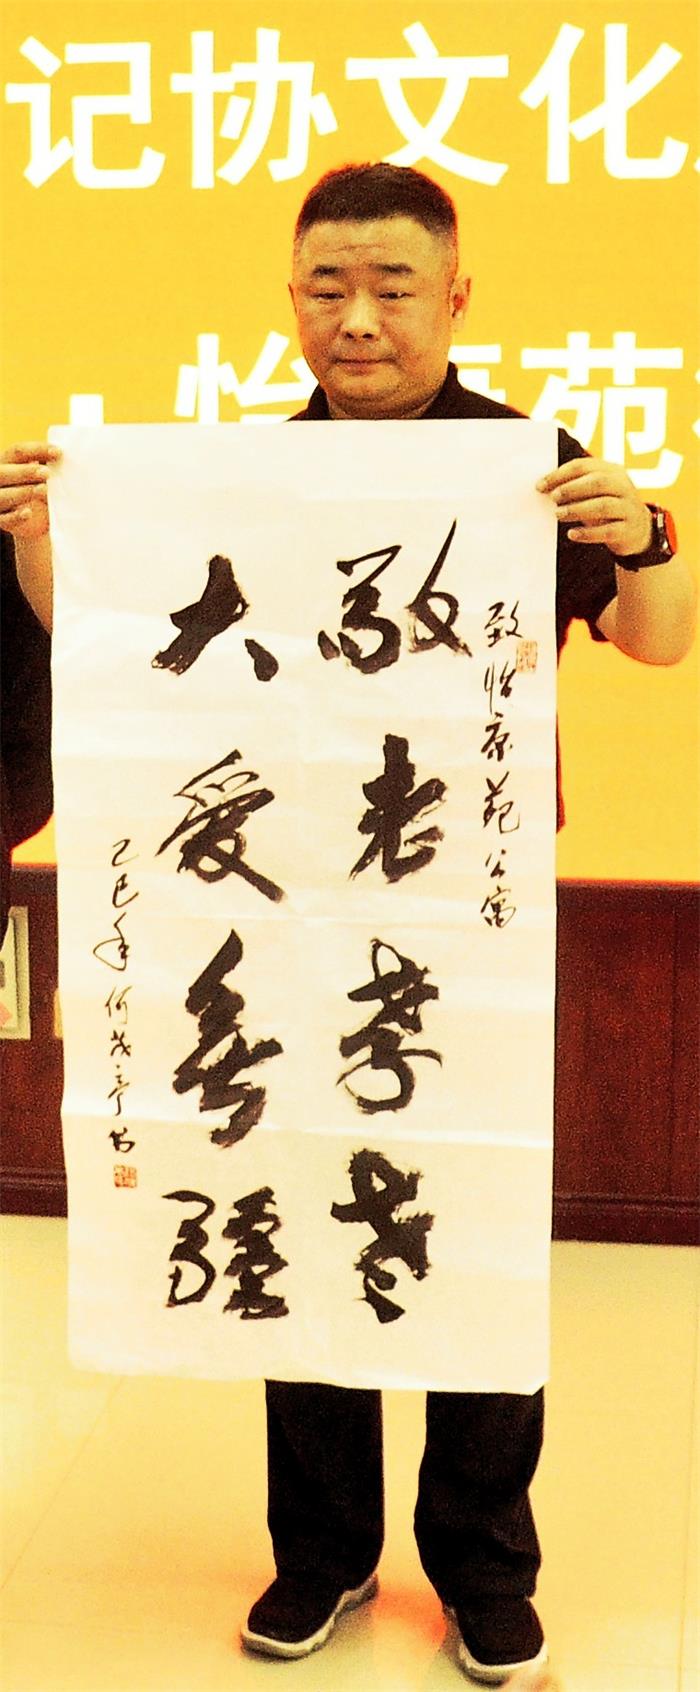 记协文化
怡康苑
致怡康苑公寓
敬老孝老
大爱無疆
乙巳年何茂亭书